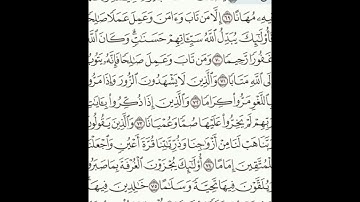 فِيهِۦ مُهَانًا ٦٩ إِلَّا مَن تَابَ وَءَامَنَ وَعَمِلَ عَمَلًا صَٰلِحًا
فَأُو۟لَٰٓئِكَ يُبَدِّلُ ٱللَّهُ سَيِّـَٔاتِهِمْ حَسَنَٰتٍ وَكَانَ ٱللَّهُ
غَفُورًا رَّحِيمًا ٧٠ وَمَن تَابَ وَعَمِلَ صَٰلِحًا فَإِنَّهُۥ يَتُوبُ
إِلَى ٱللَّهِ مَتَابًا ٧١ وَٱلَّذِينَ لَا يَشْهَدُونَ ٱلزُّورَ وَإِذَا مَرُّوا۟
بِٱللَّغْوِ مَرُّوا۟ كِرَامًا ٧٢ وَٱلَّذِينَ إِذَا ذُكِّرُوا۟ بِـَٔايَٰتِ
رَبِّهِمْ لَمْ يَخِرُّوا۟ عَلَيْهَا صُمًّا وَعُمْيَانًا ٧٣ وَٱلَّذِينَ يَقُولُونَ
رَبَّنَا هَبْ لَنَا مِنْ أَزْوَٰجِنَا وَذُرِّيَّٰتِنَا قُرَّةَ أَعْيُنٍ وَٱجْعَلْنَا
لِلْمُتَّقِينَ إِمَامًا ٧٤ أُو۟لَٰٓئِكَ يُجْزَوْنَ ٱلْغُرْفَةَ بِمَا صَبَرُوا۟
وَيُلَقَّوْنَ فِيهَا تَحِيَّةً وَسَلَٰمًا ٧٥ خَٰلِدِينَ فِيهَا